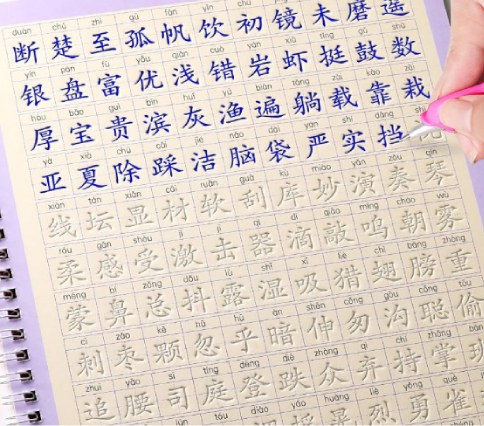 duàn chǔ zhì gū fān yǐn chū jìng wèi mó yáo
断楚至孤帆饮初镜未磨遥
yín pán fù yōu qiǎn cuò yán xiā tǐng gǔ shù
银盘富优浅错岩虾挺鼓数
hòu bǎo guì bīn huī yú biàn tǎng zài kào zāi
厚宝贵滨灰渔遍躺载靠栽
yà xià chú cǎi jié nǎo dài yán shí dǎng
亚夏除踩洁脑袋严实挡
xiàn tán xiǎn cái ruǎn guā kù miào yǎn zòu qín
线坛显材软刮库妙演奏琴
róu gǎn shòu jī jī qì dī qiāo wū zhāo wù
柔感受激击器滴敲呜朝雾
méng bí zǒng dǒu lù shī xī liè chì bǎng zhòng
蒙鼻总抖露湿吸猎翅膀重
cì zǎo kē hū hū àn shēn cōng gōu cōng tōu
刺枣颗忽乎暗伸匆沟聪偷
zhuī yāo sī tíng dēng diē zhòng qì chí zhǎng bān
追腰司庭登跌众弃持掌班
烈勇雀